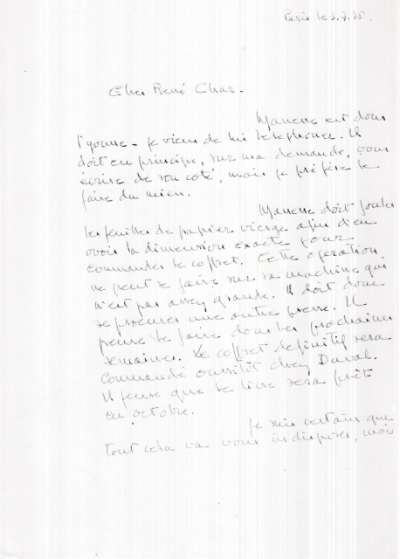 Paris le 2.7.75.
Cher René Char.
Manens est dans
l'Yonne. je viens de lui telephoner. Il
doit en principe, sur ma demande, vous
écrire de son coté, mais je préfère le
faire du mien.
Manens doit fouler
les feuilles de papier vierge afin d'en
avoir la dimension exacte pour
commander le coffret. Cette operation
ne peut se faire sur sa machine qui
n'est pas assez grande. Il doit donc
se procurer une autre presse. Il
pense le faire dans les prochaines
semaines. Le coffret definitif sera
commandé aussitôt chez Duval.
Il pense que le livre sera prêt
en octobre.
je suis certain que
tout cela va vous indisposer, mais